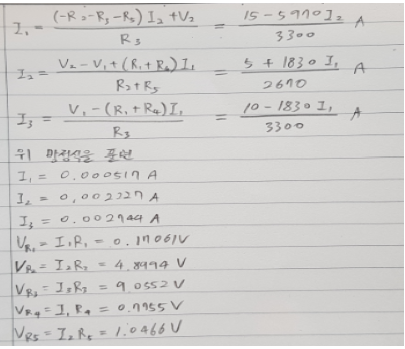 I₁ = (-R₂-R₃-R₅) I₂ + V₂ / R₃ = 15 - 5970 I₂ / 3300 A
I₂ = V₂ - V₁ + (R₁ + R₄) I₁ / R₂ + R₅ = 5 + 1830 I₁ / 2670 A
I₃ = V₁ - (R₁ + R₄) I₁ / R₃ = 10 - 1830 I₁ / 3300 A
위 방정식을 풀면
I₁ = 0.000517 A
I₂ = 0.002227 A
I₃ = 0.002744 A
V_R₁ = I₁R₁ = 0.17061 V
V_R₂ = I₂R₂ = 4.8994 V
V_R₃ = I₃R₃ = 9.0552 V
V_R₄ = I₁R₄ = 0.7755 V
V_R₅ = I₂R₅ = 1.0466 V